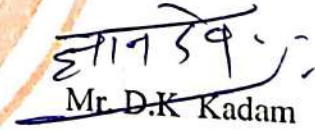 ज्ञानदेव
Mr. D.K Kadam